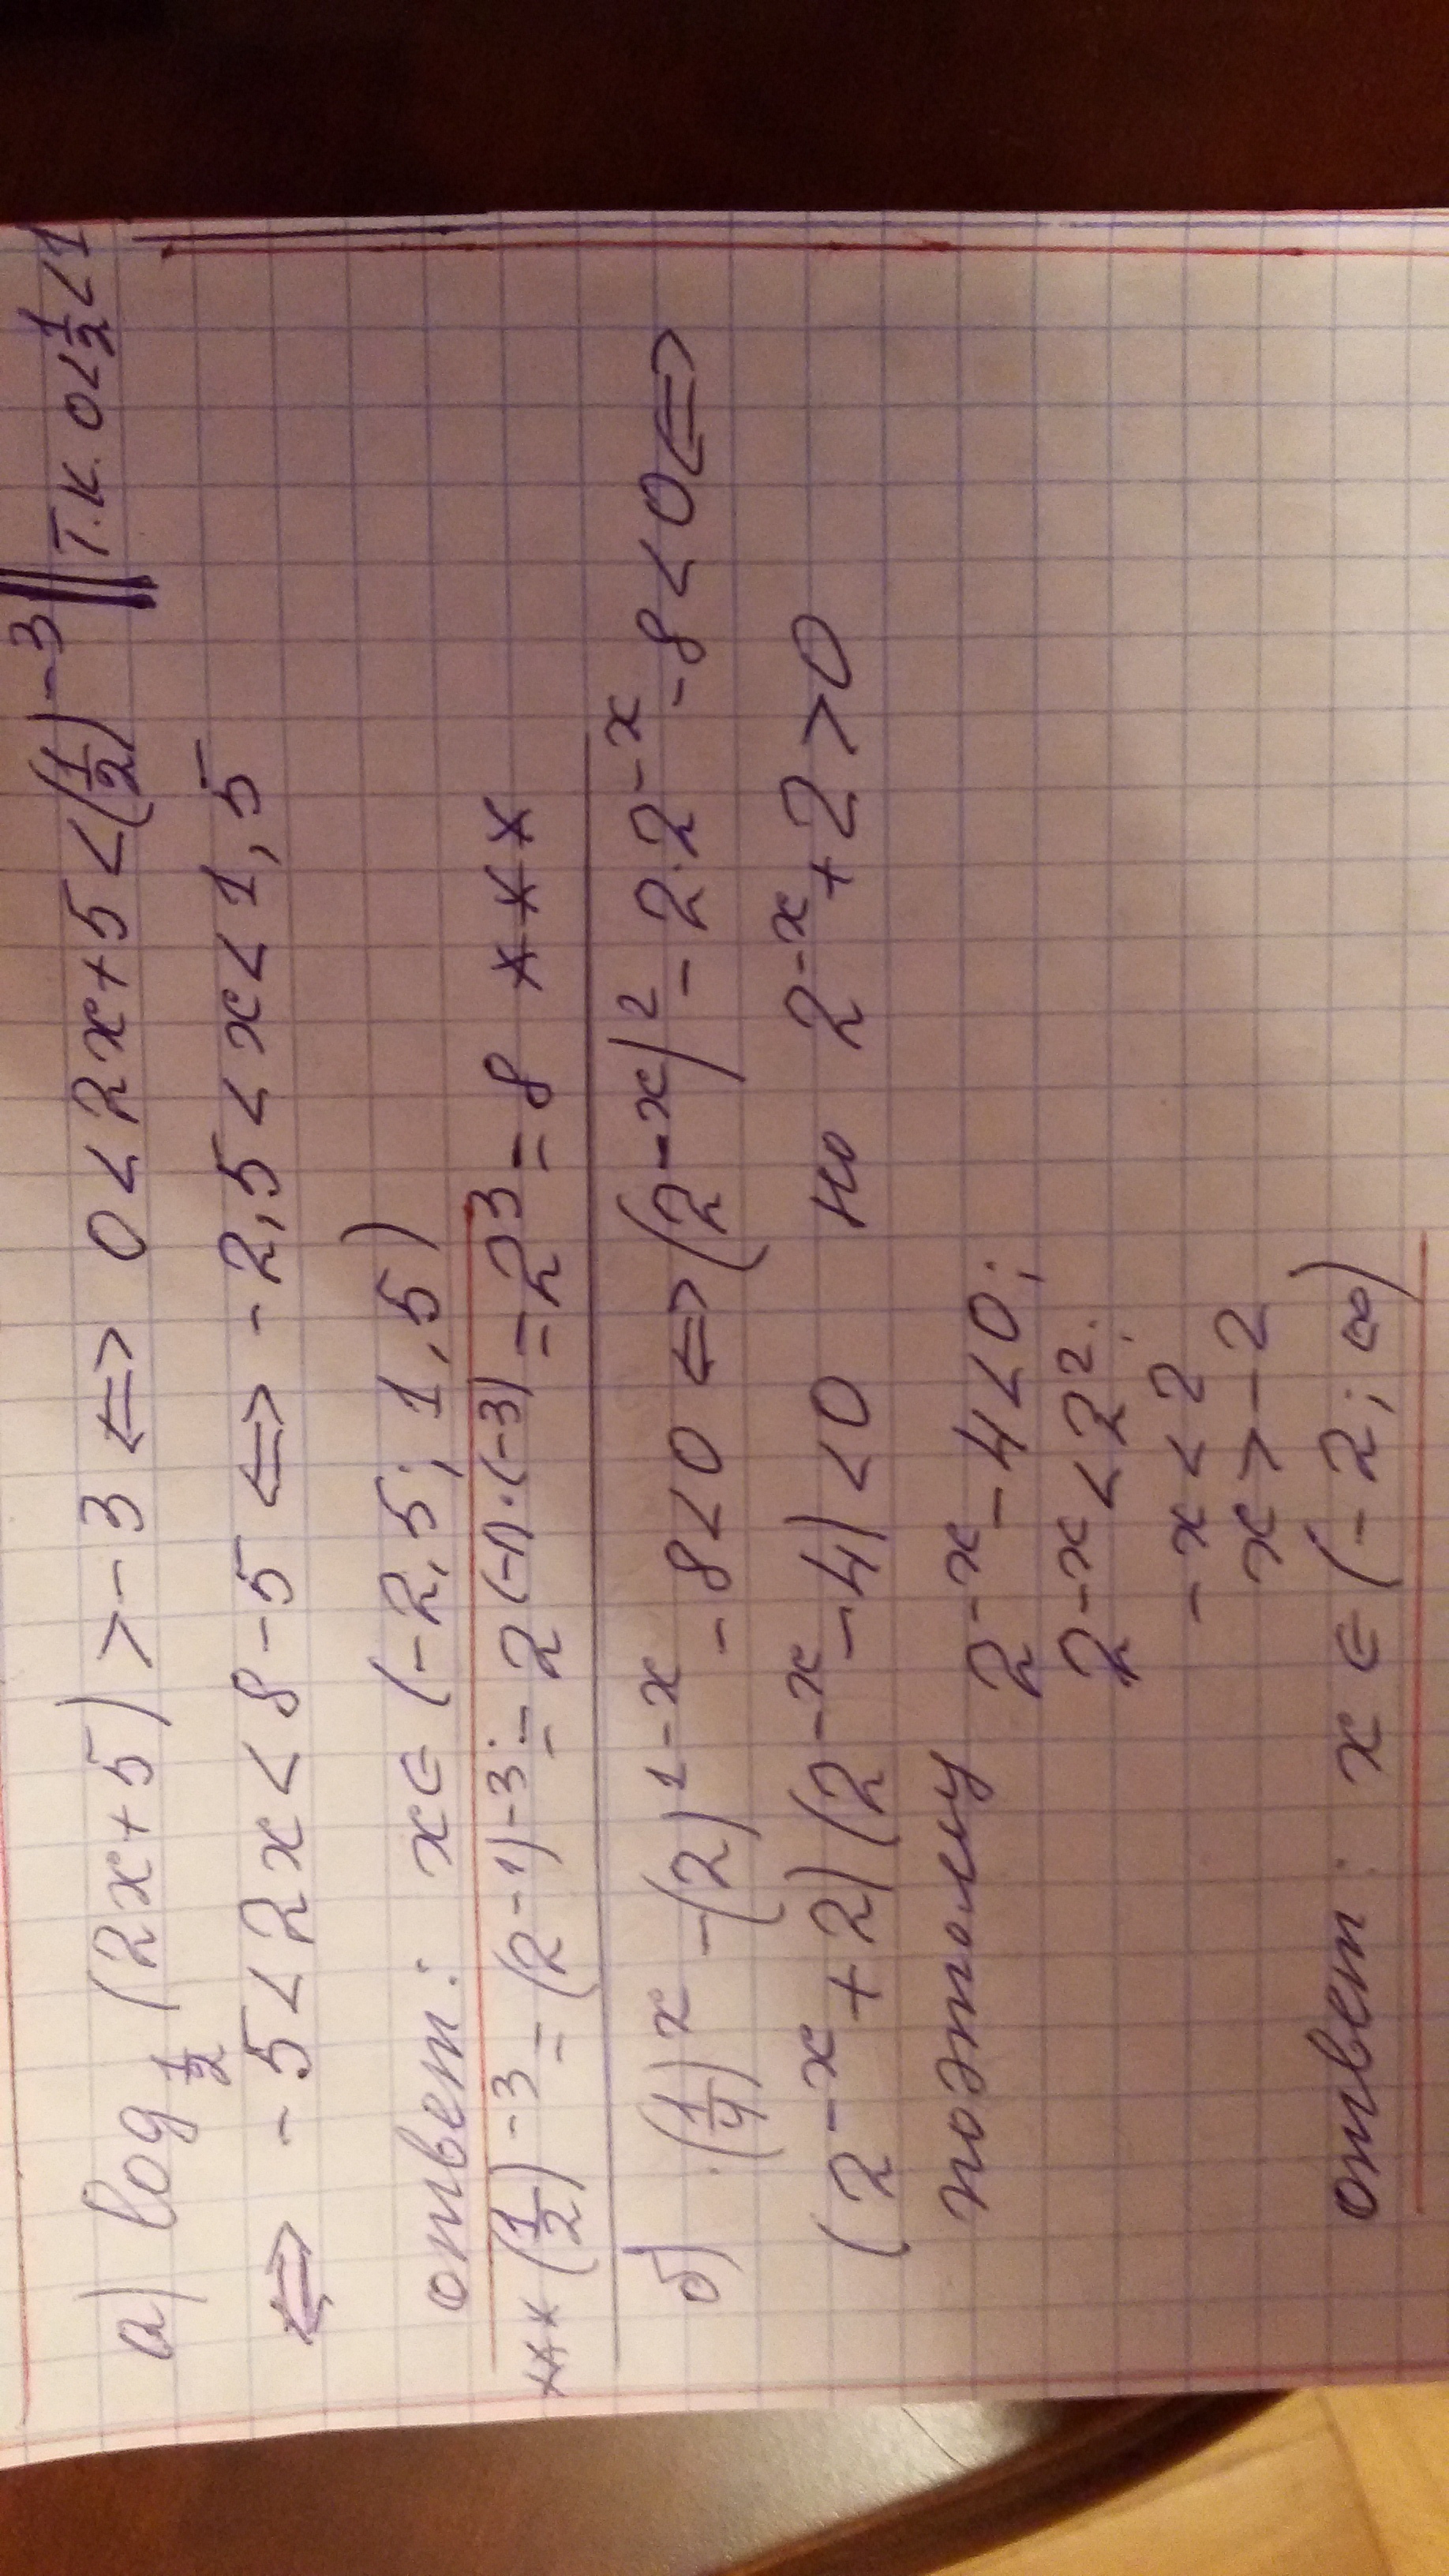 а) log 1/2 (2x+5) > -3 <=> 0 < 2x+5 < (1/2)^-3 || т.к. 0<1/2<1
<=> -5 < 2x < 8-5 <=> -2,5 < x < 1,5
ответ: x∈(-2,5; 1,5)
*** (1/2)^-3 = (2^-1)^-3 = 2^(-1)·(-3) = 2^3 = 8 ***
б) (1/4)^x - (2)^1-x - 8 < 0 <=> (2^-x)^2 - 2·2^-x - 8 < 0 <=>
(2^-x + 2)(2^-x - 4) < 0 но 2^-x + 2 > 0
поэтому 2^-x - 4 < 0;
2^-x < 2^2;
-x < 2
x > -2
ответ: x∈(-2; ∞)